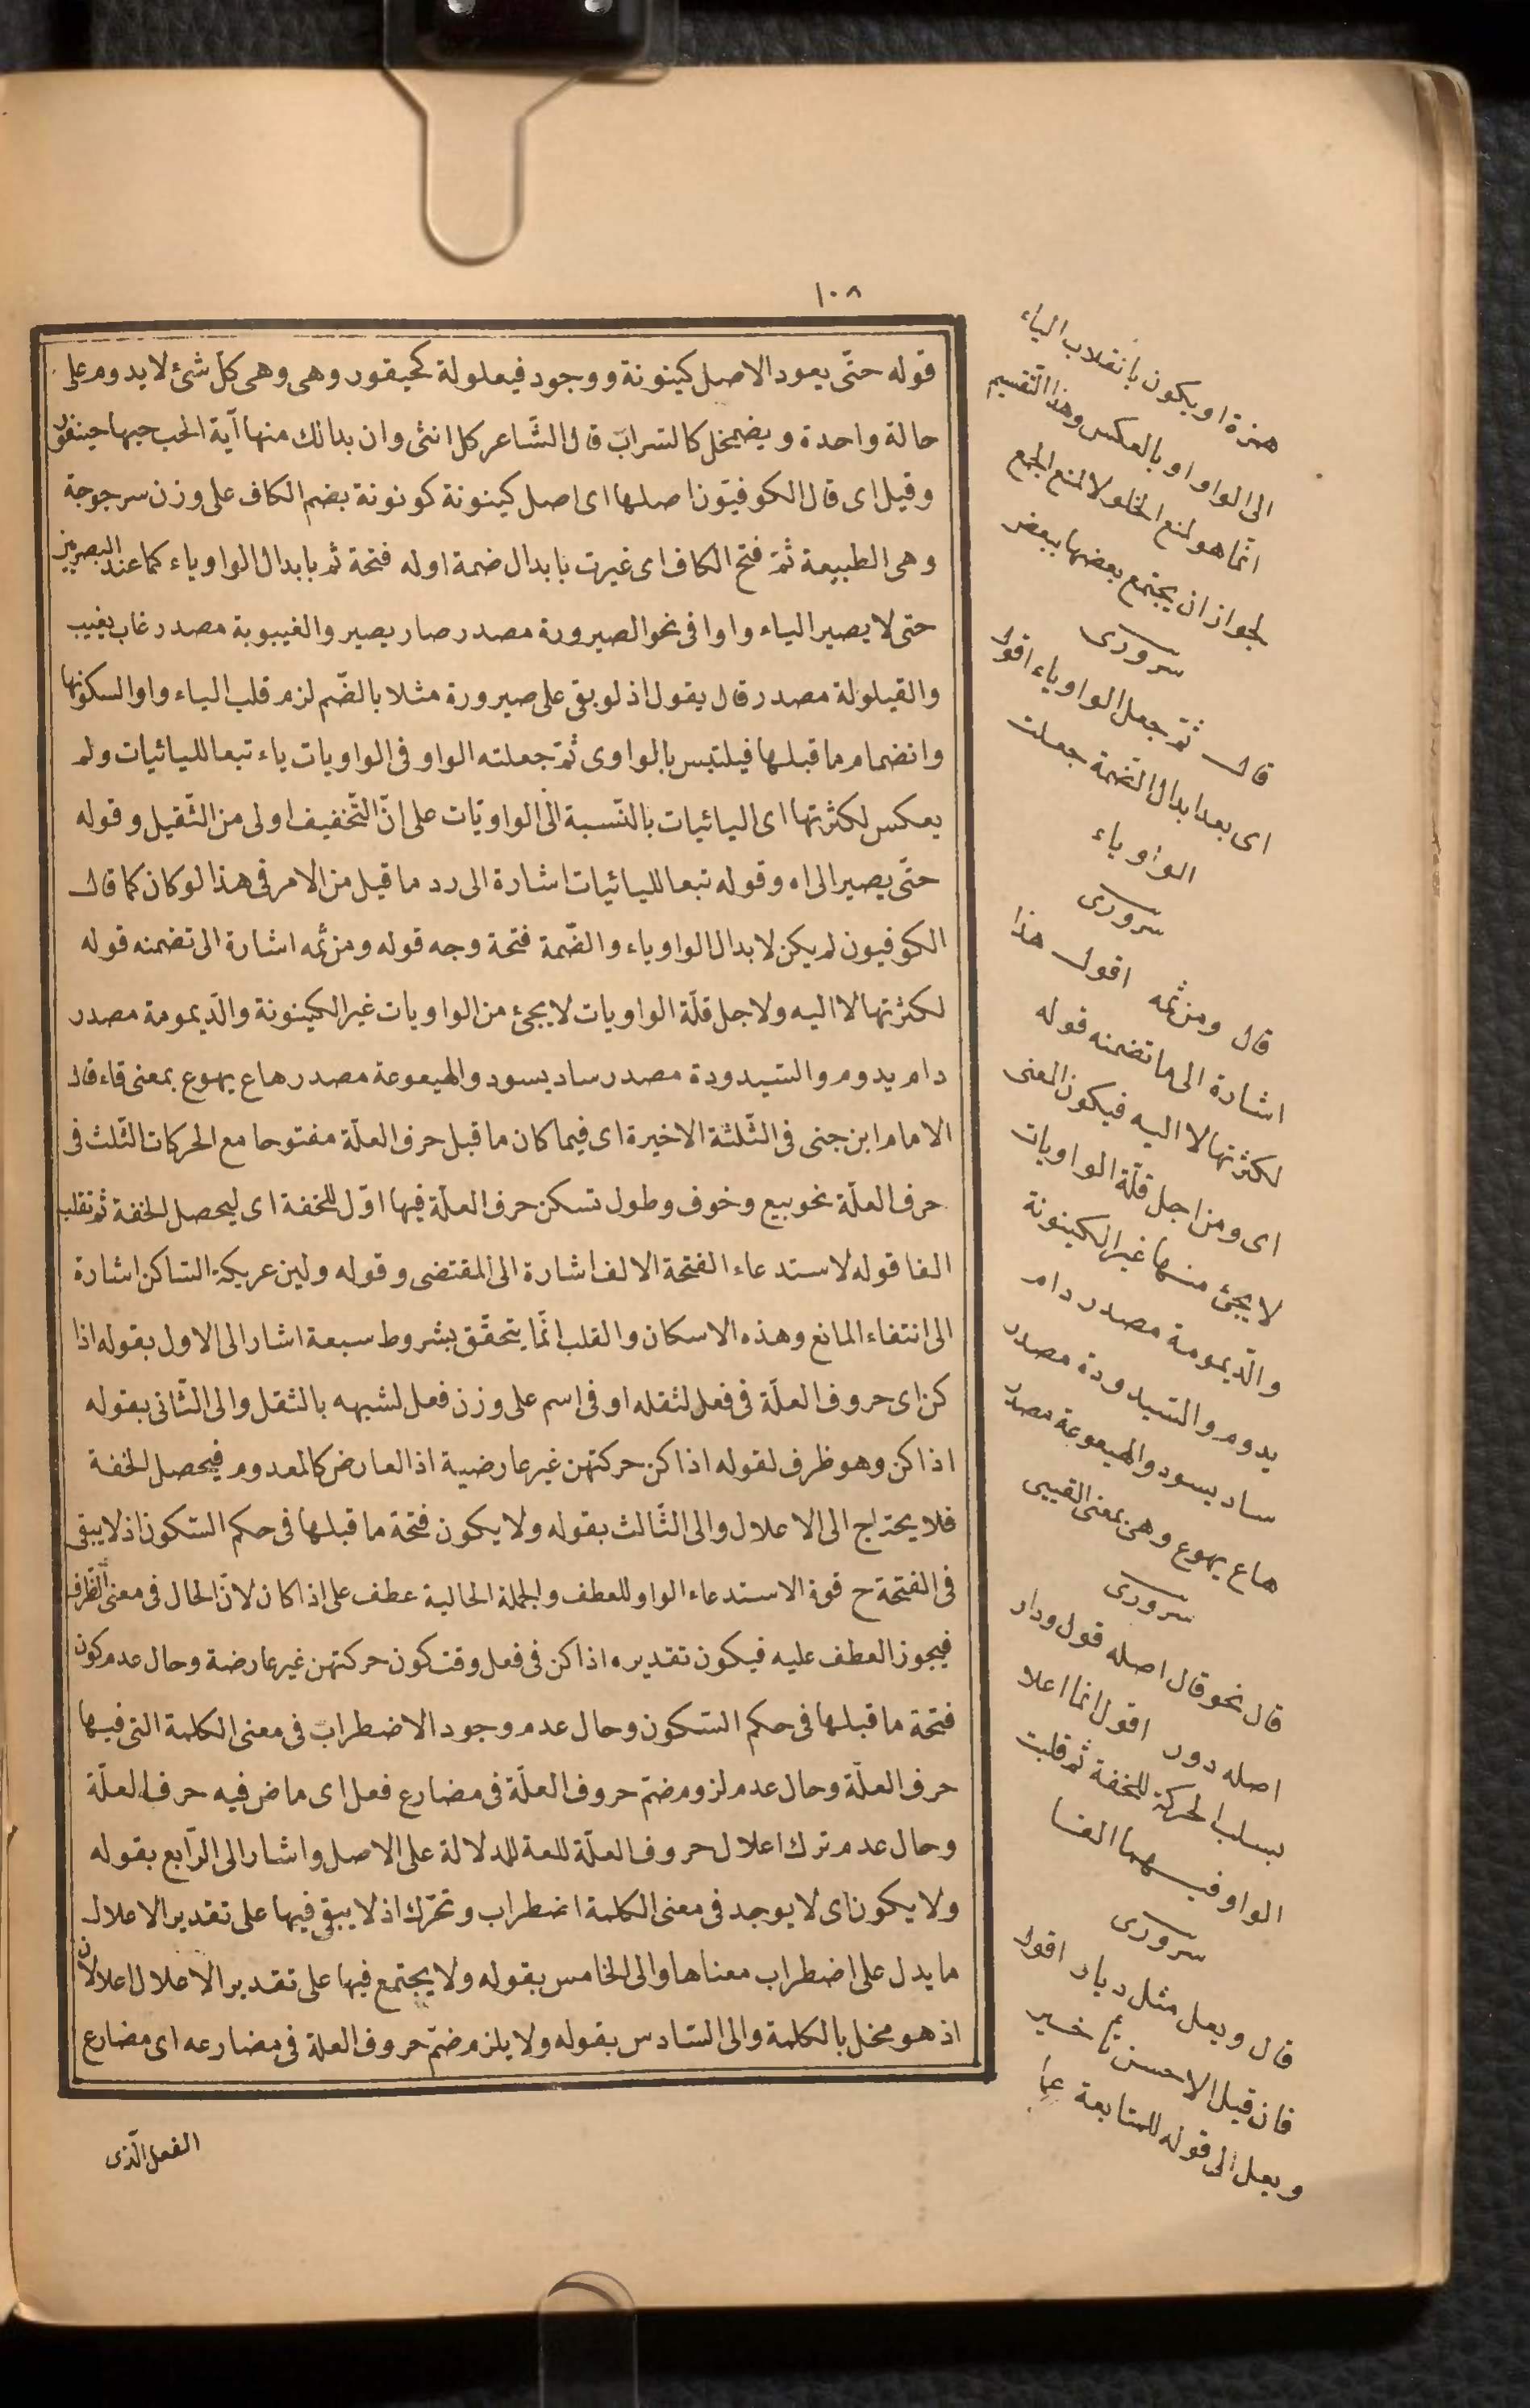 ١٠٨
قوله حتّى يعود الاصل كينونة ووجود فيعلولة كخيقور وهى وهى كلّ شئ لا يدوم على
حالة واحدة ويضمخل كالسّراب قال الشّاعر كل انثى وان بدا لك منها آية الحب حبها حيتفور
وقيل اى قال الكوفيّون اصلها اى اصل كينونة كونونة بضم الكاف على وزن سرجوجة
وهى الطبيعة ثمّ فتح الكاف اى غيرت بابدال ضمة اوله فتحة ثم بابدال الواو ياء كما عند البصريين
حتى لا يصير الياء واوا فى نحو الصيرورة مصدر صار يصير والغيبوبة مصدر غاب يغيب
والقيلولة مصدر قال يقول اذ لو بقى على صيرورة مثلا بالضّم لزم قلب الياء واوا لسكونها
وانضمام ما قبلها فيلتبس بالواوى ثمّ جعلته الواو فى الواويات ياء تبعا لليائيات ولم
يعكس لكثرتها اى اليائيات بالنّسبة الى الواويّات على انّ التّخفيف اولى من الثّقيل وقوله
حتّى يصير الى اه وقوله تبعا لليائيات اشارة الى رد ما قيل من الامر فى هذا لو كان كما قال
الكوفيون لم يكن لابدال الواو ياء والضّمة فتحة وجه قوله ومن ثمه اشارة الى تضمنه قوله
لكثرتها لا اليه ولاجل قلّة الواويات لا يجئ من الواويات غير الكينونة والدّيمومة مصدر
دام يدوم والسّيدودة مصدر ساد يسود والهيعوعة مصدر هاع يهوع بمعنى قاء قال
الامام ابن جنى فى الثّلثة الاخيرة اى فيما كان ما قبل حرف العلّة مفتوحا مع الحركات الثّلث فى
حرف العلّة نحو بيع وخوف وطول تسكن حرف العلّة فيها اوّل للخفة اى ليحصل الخفة ثم تقلب
الفا قوله لاستدعاء الفتحة الالف اشارة الى المقتضى وقوله ولين عريكة السّاكن اشارة
الى انتفاء المانع وهذه الاسكان والقلب انّما يتحقّق بشروط سبعة اشار الى الاول بقوله اذا
كن اى حروف العلّة فى فعل لثقله او فى اسم على وزن فعل لشبهه بالثقل والى الثّانى بقوله
اذا كن وهو ظرف لقوله اذا كن حركتهن غير عارضية اذ العارض كالمعدوم فيحصل الخفة
فلا يحتاج الى الاعلال والى الثّالث بقوله ولا يكون فتحة ما قبلها فى حكم السّكون اذ لا يبقى
فى الفتحة ح قوة الاستدعاء الواو للعطف والجملة الحالية عطف على اذا كان لانّ الحال فى معنى الظرف
فيجوز العطف عليه فيكون تقديره اذا كن فى فعل وقت كون حركتهن غير عارضة وحال عدم كون
فتحة ما قبلها فى حكم السّكون وحال عدم وجود الاضطراب فى معنى الكلمة التى فيها
حرف العلّة وحال عدم لزوم ضمّ حروف العلّة فى مضارع فعل اى ماض فيه حرف العلّة
وحال عدم ترك اعلال حروف العلّة للعة للدلالة على الاصل واشار الى الرّابع بقوله
ولا يكون اى لا يوجد فى معنى الكلمة اضطراب وتحرّك اذ لا يبقى فيها على تقدير الاعلال
ما يدل على اضطراب معناها والى الخامس بقوله ولا يجتمع فيها على تقدير الاعلال اعلالان
اذ هو مخل بالكلمة والى السّادس بقوله ولا يلزم ضمّ حروف العلة فى مضارعه اى مضارع
الفعل الّذى
همزة او يكون بانقلاب الياء
الى الواو او بالعكس وهذا التّقسيم
انّما هو لمنع الخلو لا لمنع الجمع
لجواز ان يجتمع بعضها ببعض
سرورى
قال ثمّ جعل الواو ياء اقول
اى بعد ابدال الضّمة جعلت
الواو ياء
سرورى
قال ومن ثمه اقول هذا
اشارة الى ما تضمنه قوله
لكثرتها لا اليه فيكون المعنى
اى ومن اجل قلّة الواويات
لا يجئ منها غير الكينونة
والدّيمومة مصدر دام
يدوم والسّيدودة مصدر
ساد يسود والهيعوعة مصدر
هاع يهوع وهى بمعنى القيى
سرورى
قال نحو قال اصله قول ودار
اصله دور اقول انما اعلا
بسلب الحركة للخفة ثم قلبت
الواو فيهما الفا
سرورى
قال ويعل مثل ديار اقول
فان قيل الاحسن تأخير
ويعل الى قوله للمتابعة